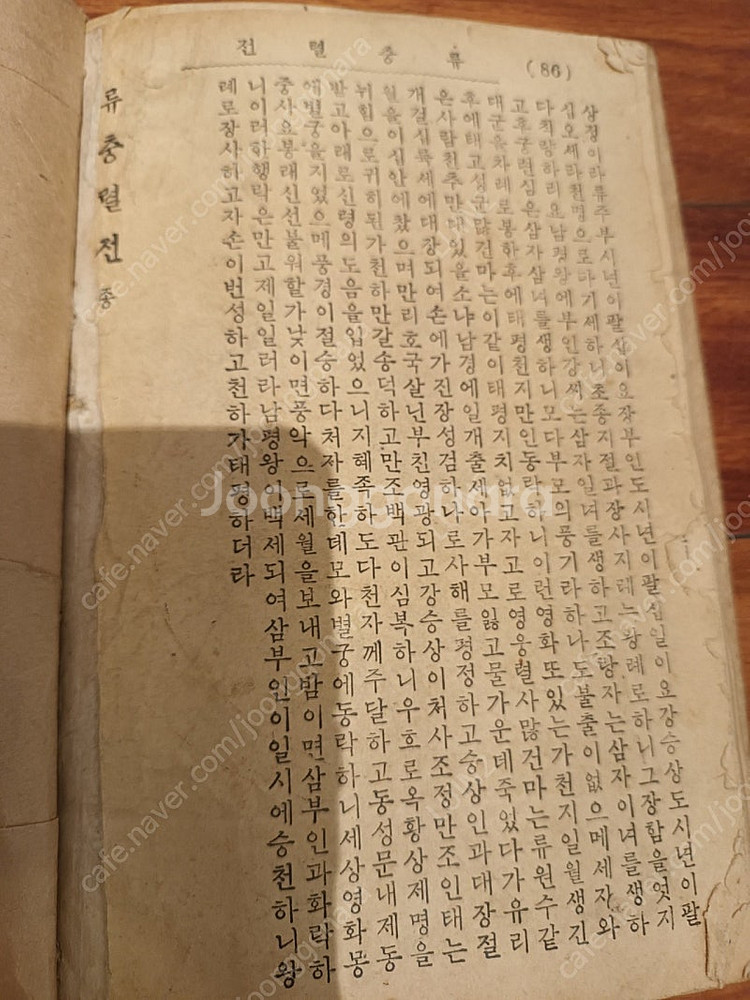 (86) 류충렬전
상졍이라류주부시년이팔십이요쟝부인도시년이팔십일이요강승상도시년이팔
십오세라쳔명으로하기세하니초종지졀과장사지테는왕례로하니그장함을엇지
다칙량하리요남평왕에부인강씨는삼자일녀를생하고조랑자는삼자이녀를생하
고후궁련심은삼자삼녀를생하니모다부모의풍기라하나도불츌이없으메세자와
대군을차례로봉하후에태평쳔지만인동락하니이런영화또있는가천지일월생긴
후에태고성군많건마는이같이태평지치없고자고로영웅렬사많건마는류원수같
은사람쳔추만대있을소냐남경에일개출세아가부모잃고물가운데죽있다가유리
개걸십륙세에대장되여손에가진장성검하나로사해를평정하고승상인과대장절
월을이십안에찼으며만리호국살닌부친영광되고강승상이처사조정만조인태는
뉘힘으로귀히된가천하만갈송덕하고만조백관이심복하니우흐로옥황상제명을
받고아래로신령의도음을입었으니지혜족하도다천자께주달하고동성문내제동
애별궁을지었으메풍경이절승하다처자를한데모와별궁에동락하니세상영화몽
중사요봉래신선불워할가낮이면풍악으로세월을보내고밤이면삼부인과화락하
니이러하행락은만고제일일러라남평왕이백세되여삼부인이일시에승천하니왕
례로장사하고자손이번성하고천하가태평하더라
류충렬전 종
Joonggonara
cafe.naver.com/joonggonara